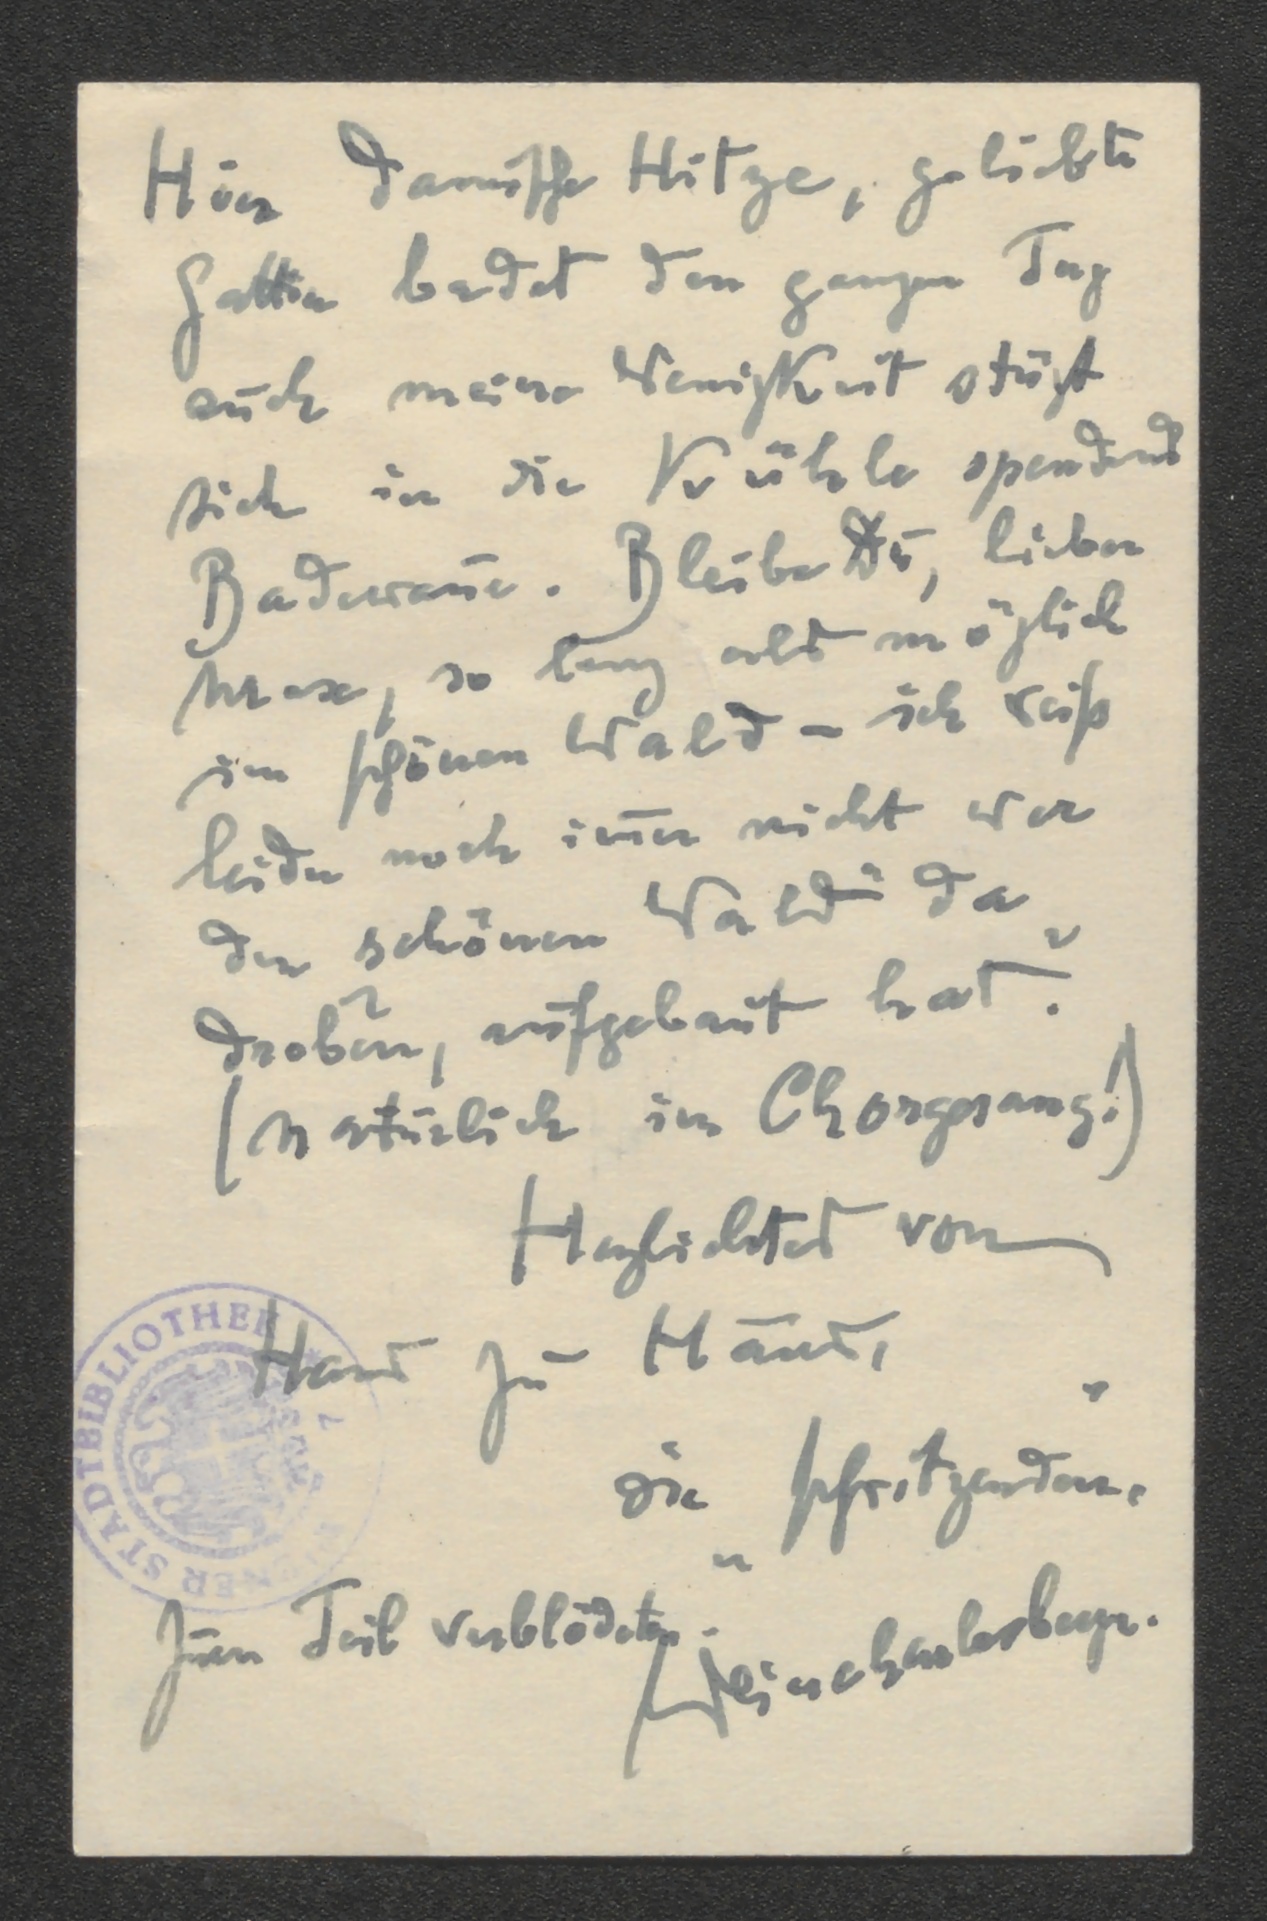 Hier damische Hitze, geliebte
Gattin badet den ganzen Tag
auch meine Wenigkeit stürzt
sich in die Kühle spendend
Badewañe. Bleibe Du, lieber
so lang als möglich
im schönen Wald – ich weiß
leider noch im̄er nicht wer
den schönen Wald da
droben, aufgebaut hat?
(natürlich im Chorgesang!)
Herzlichstes von
Haus zu Haus,
die schwitzenden,
zum Teil verblödeten
STADTBIBLIOTHEK